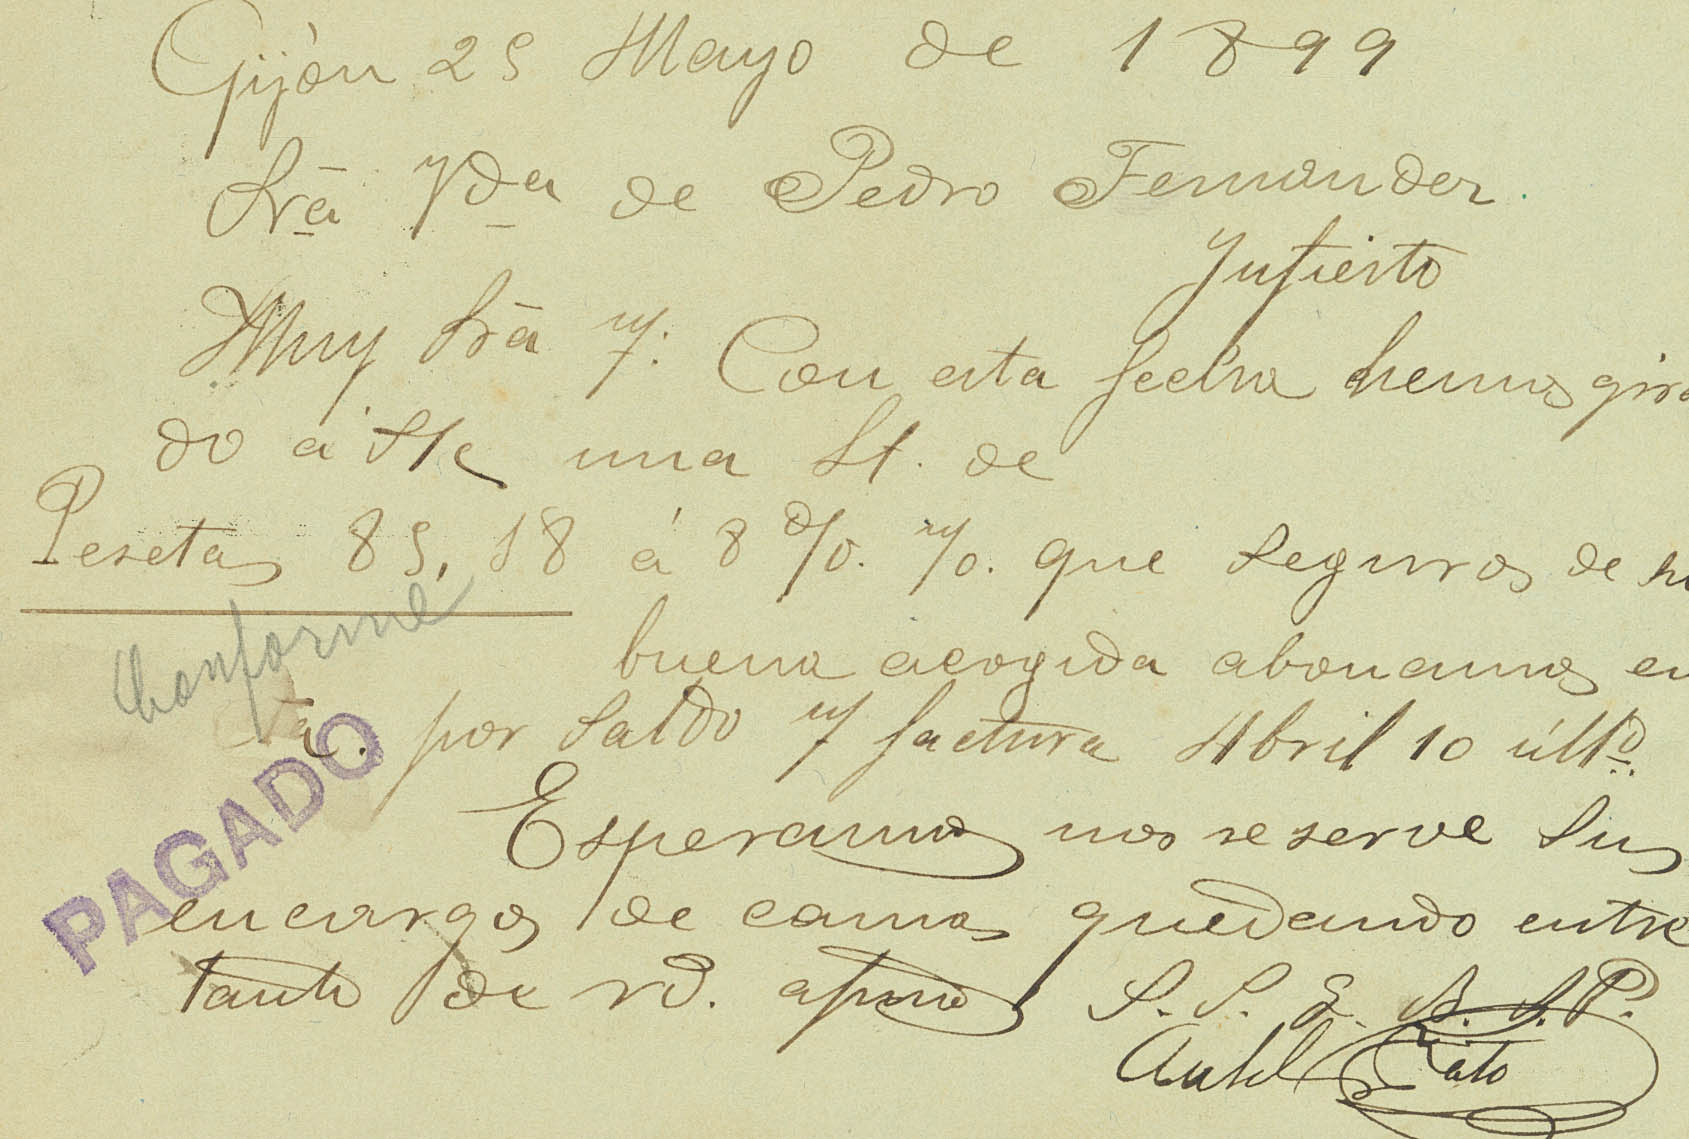 Gijón 25 Mayo de 1899
Srã Vda de Pedro Fernandez
Ynfiesto
Muy Srã n/: Con esta fecha hemos gira
do á Ste una Lt. de
Pesetas 85,18 á 8 d/v. n/o. que seguros de su
Conforme
buena acogida abonamos en
ta. por saldo n/ factura Abril 10 últº.
PAGADO
Esperamos nos reserve sus
encargos de camas quedando entre
tanto de vd. afmos S. S. Q. B. S. P.
Rato